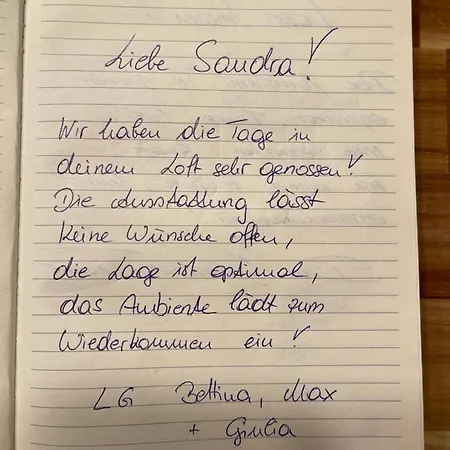 Liebe Sandra!
Wir haben die Tage in
deinem Loft sehr genossen!
Die Ausstadlung lässt
keine Wünsche offen,
die Lage ist optimal,
das Ambiente lädt zum
Wiederkommen ein!
LG Bettina, Max
+ Giulia